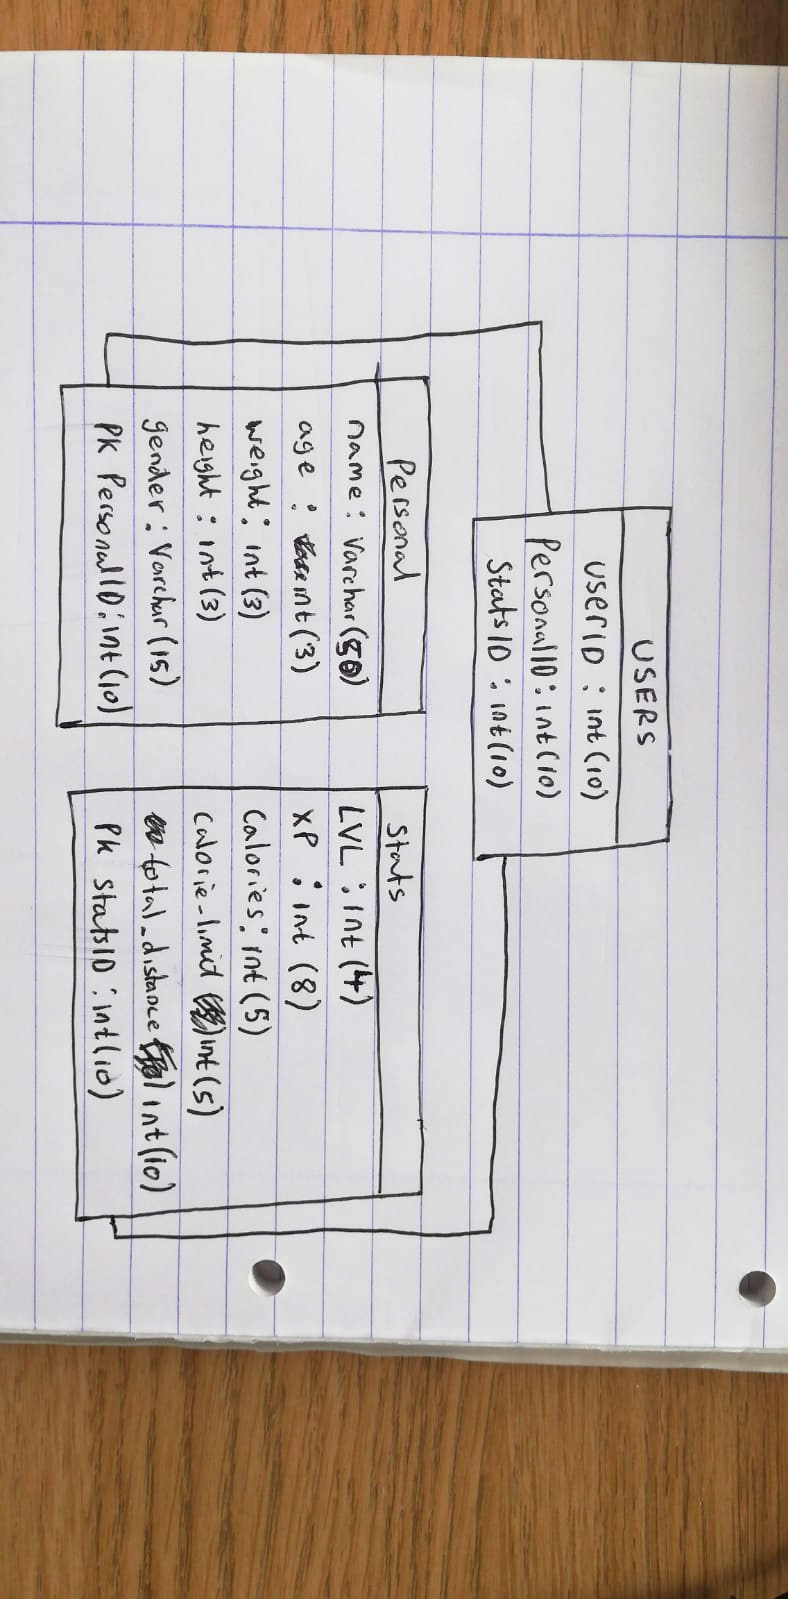 USERS
userID : int(10)
PersonalID : int(10)
StatsID : int(10)
Personal
name : Varchar(50)
age : int(3)
weight : int(3)
height : int(3)
gender : Varchar(15)
PK PersonalID : int(10)
Stats
LVL : int(4)
XP : int(8)
Calories : int(5)
Calorie-limit int(5)
total_distance int(10)
Pk StatsID : int(10)